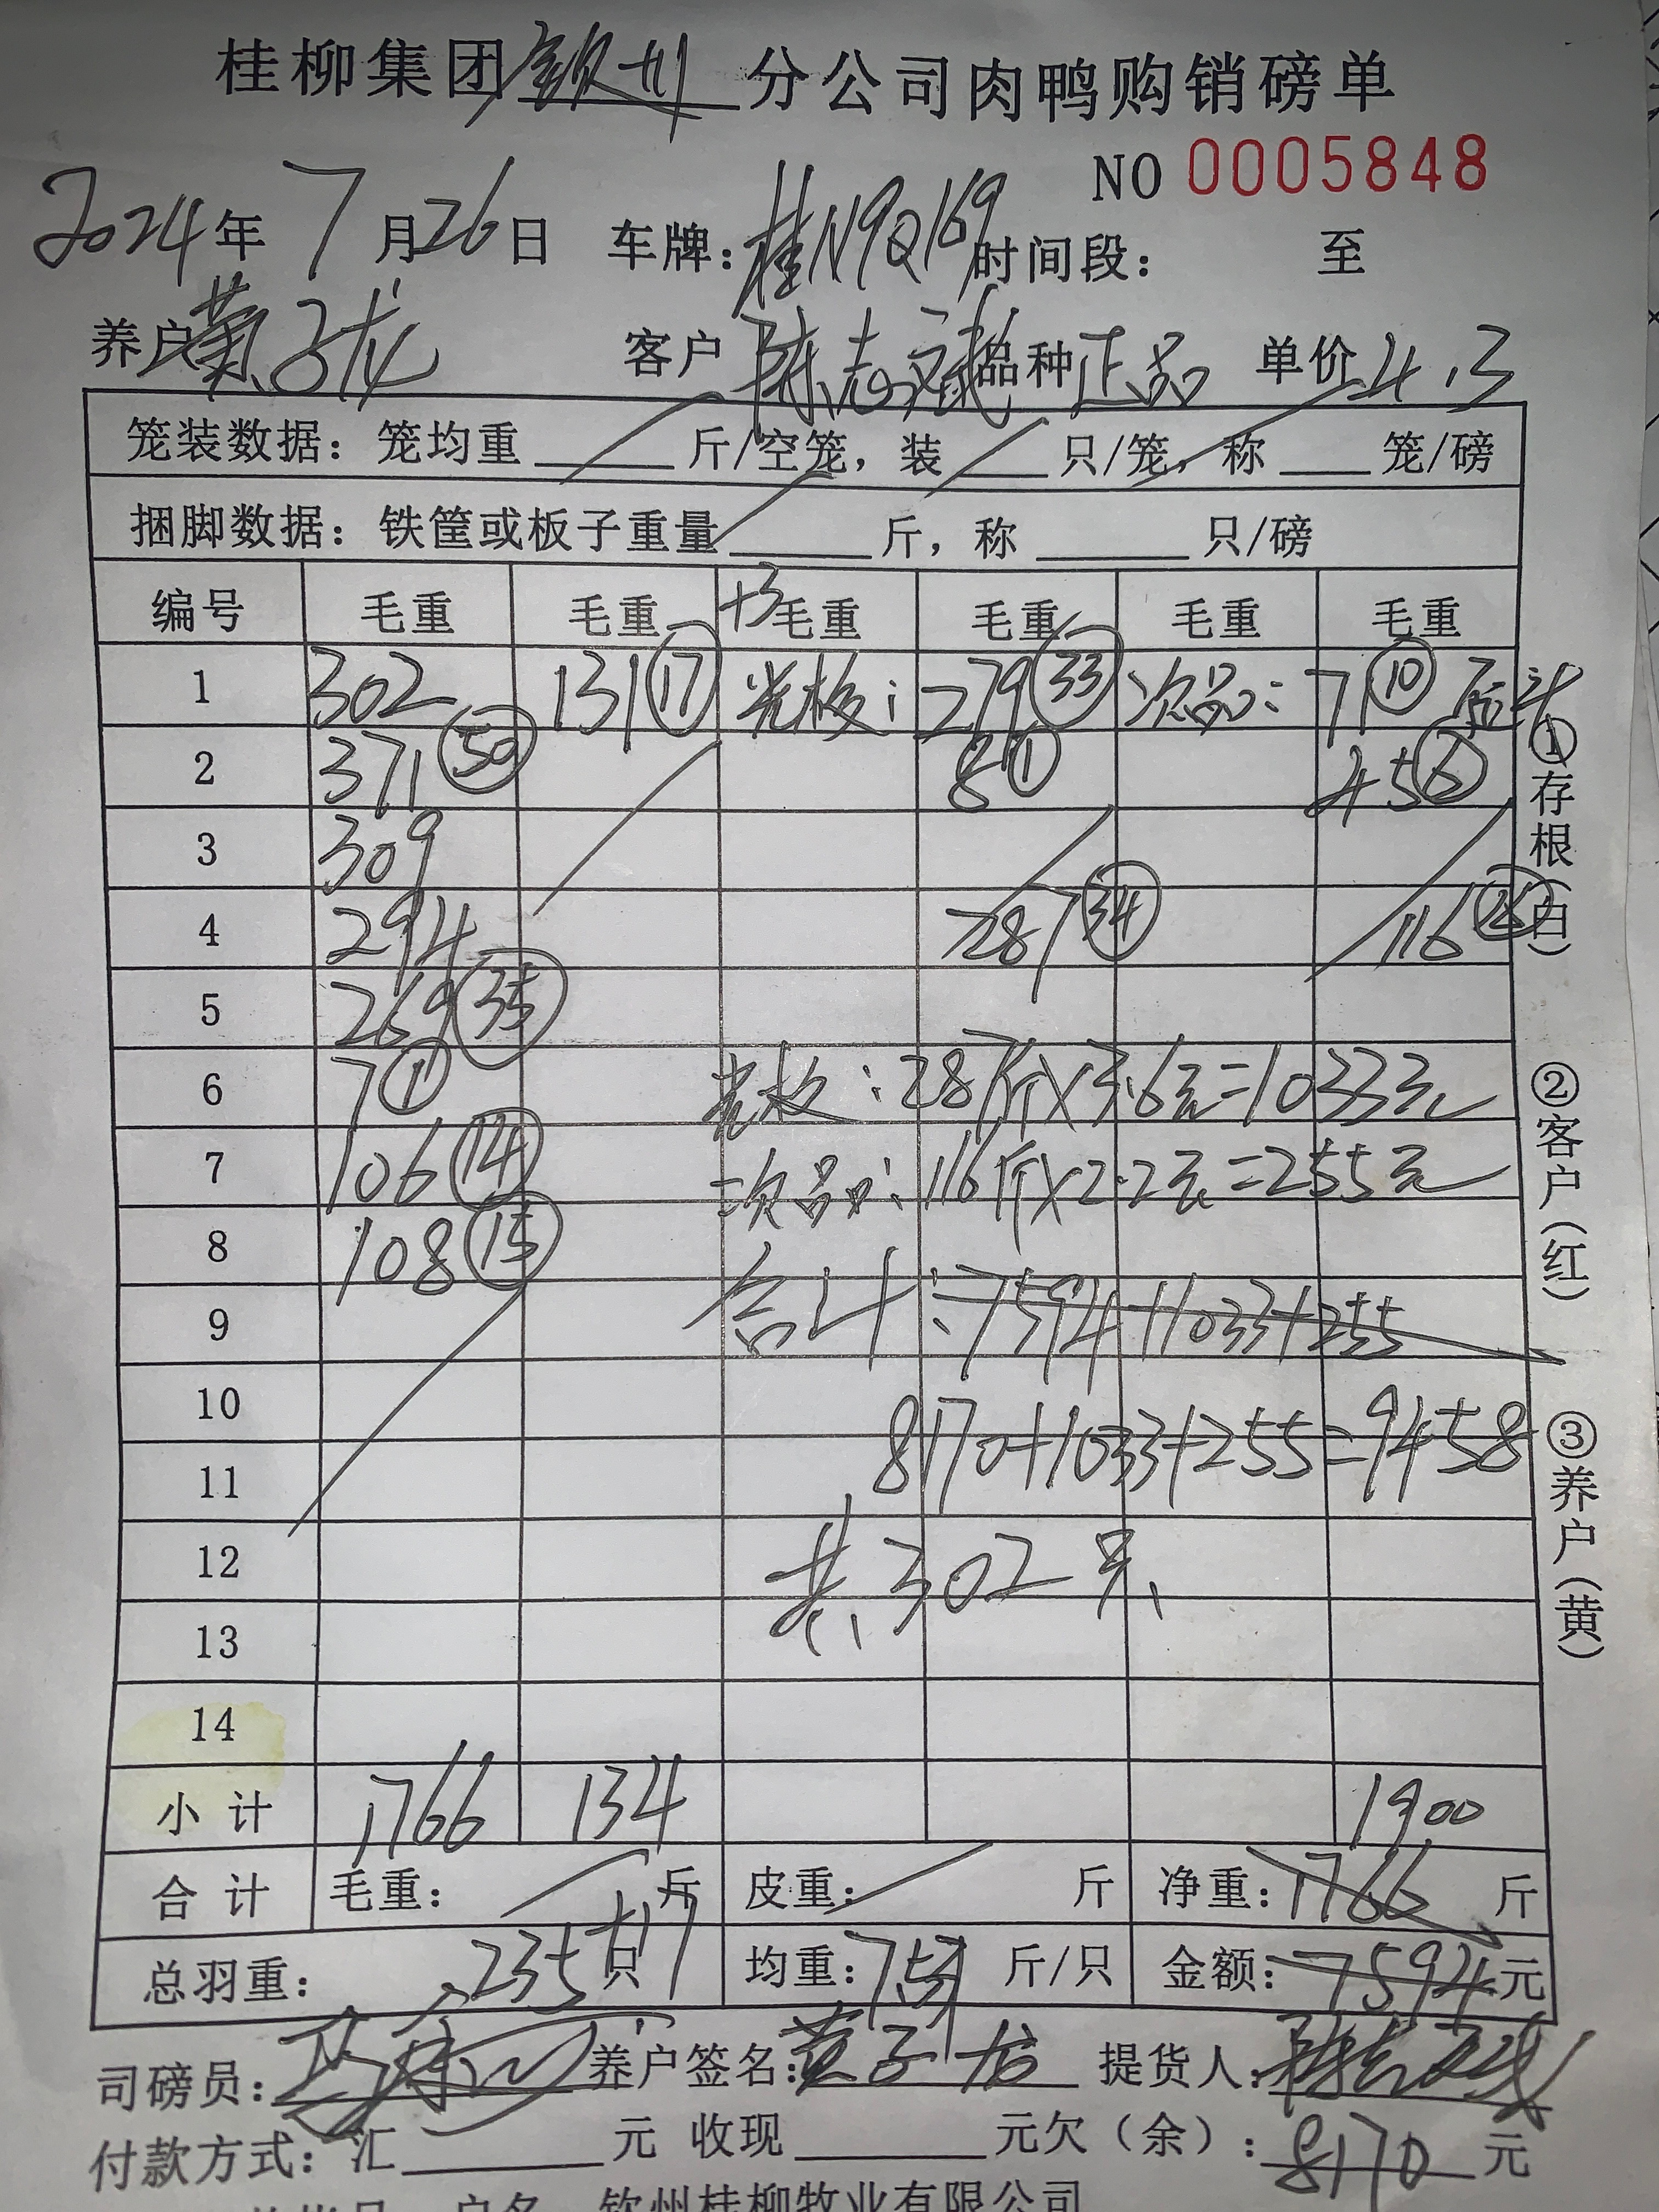 桂柳集团钦州分公司肉鸭购销磅单
NO 0005848
2024年7月26日 车牌：桂N9Q169 时间段： 至
养户 黄子龙 客户 陈志斌 品种 正品 单价 4.3
笼装数据：笼均重____斤/空笼，装____只/笼，称____笼/磅
捆脚数据：铁筐或板子重量____斤，称____只/磅
编号 毛重 毛重 +3 毛重 毛重 毛重 毛重
1 302 131 ⑰ 光板： 279 ㉝ 次品： 71 ⑩
2 371 ㊿ 8 ① 45 ⑥
3 309
4 294 287 ㉞ 116
5 269 ㉟
6 7 ① 光板：287斤×3.6元=1033元
7 106 ⑭ 次品：116斤×2.2元=255元
8 108 ⑮
9 合计：7594+1033+255
10
11 8170+1033+255=9458
12 共302只
13
14
小计 1766 134 1900
合计 毛重： 斤 皮重： 斤 净重：1766 斤
总羽重： 235 只 +17 均重：7.51 斤/只 金额：7594元
司磅员： 养户签名：黄子龙 提货人：陈志斌
付款方式：汇____元 收现____元欠（余）：8170元
钦州桂柳牧业有限公司
①存根（白）
②客户（红）
③养户（黄）